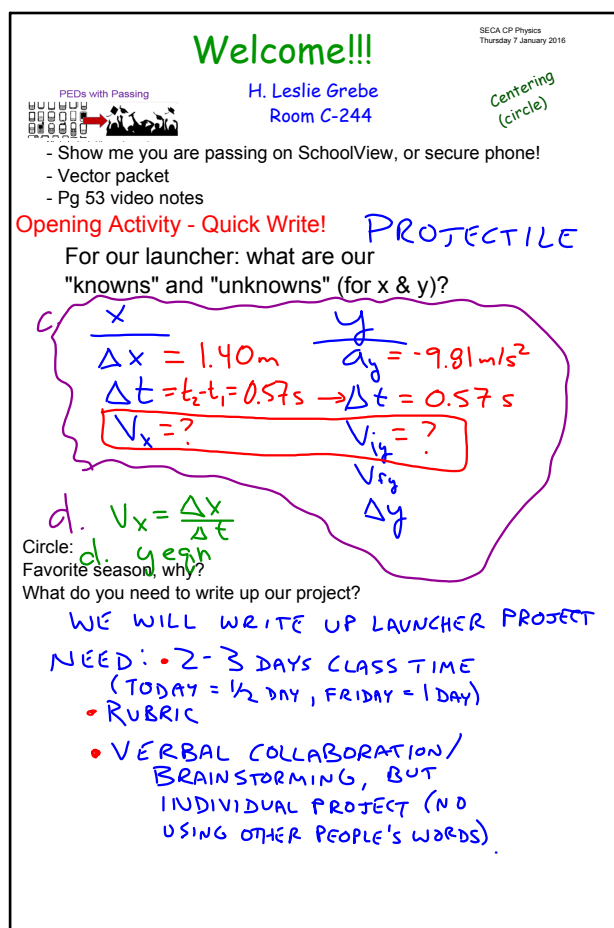 SECA CP Physics
Thursday 7 January 2016
Welcome!!!
H. Leslie Grebe
Room C-244
Centering
(circle)
PEDs with Passing
- Show me you are passing on SchoolView, or secure phone!
- Vector packet
- Pg 53 video notes
Opening Activity - Quick Write!
PROJECTILE
For our launcher: what are our
"knowns" and "unknowns" (for x & y)?
c.
x y
Δx = 1.40m a_y = -9.81 m/s²
Δt = t₂-t₁ = 0.57s → Δt = 0.57 s
V_x = ? V_iy = ?
V_fy
Δy
d. V_x = Δx/Δt
Circle: d. y eqn
Favorite season, why?
What do you need to write up our project?
WE WILL WRITE UP LAUNCHER PROJECT
NEED: • 2-3 DAYS CLASS TIME
(TODAY = 1/2 DAY, FRIDAY = 1 DAY)
• RUBRIC
• VERBAL COLLABORATION/
BRAINSTORMING, BUT
INDIVIDUAL PROJECT (NO
USING OTHER PEOPLE'S WORDS).